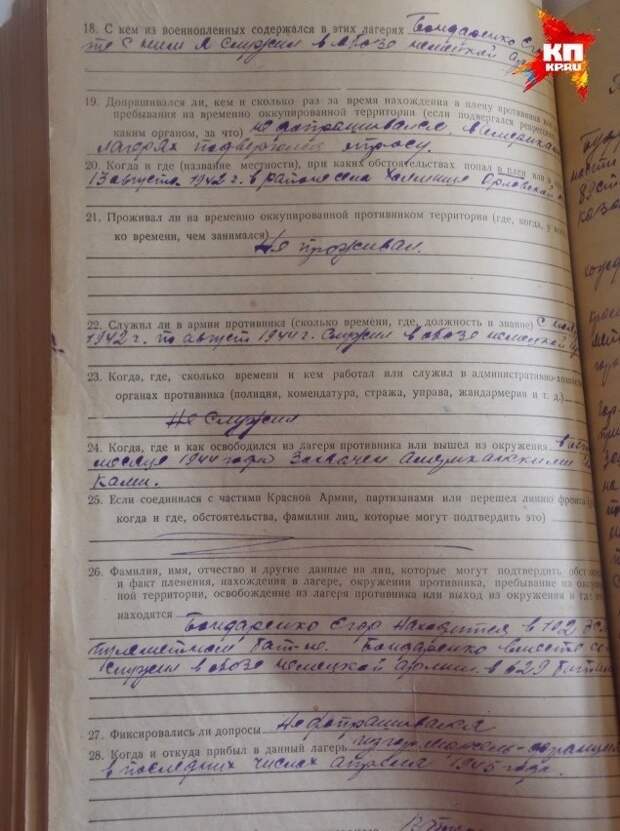 КП
KP.RU
18. С кем из военнопленных содержался в этих лагерях Бондаренко Его
же с ним я служил в обозе немецкой
19. Допрашивался ли, кем и сколько раз за время нахождения в плену противника
пребывания на временно оккупированной территории (если подвергался репрессиям
каким органом, за что) не допрашивался, в
лагерях подвергался опросу.
20. Когда и где (название местности), при каких обстоятельствах попал в плен или
13 августа 1942 г. в районе села Орловской
21. Проживал ли на временно оккупированной противником территории (где, когда, у
ко времени, чем занимался)
Не проживал.
22. Служил ли в армии противника (сколько времени, где, должность и звание) С
1942 г. по август 1944 г. Служил в обозе немецкой
23. Когда, где, сколько времени и кем работал или служил в административно-хозяй
органах противника (полиция, комендатура, стража, управа, жандармерия и т. д.)
Не служил
24. Когда, где и как освободился из лагеря противника или вышел из окружения в
месяце 1944 года захвачен американскими
ками.
25. Если соединился с частями Красной Армии, партизанами или перешел линию фронта
когда и где, обстоятельства, фамилии лиц, которые могут подтвердить это)
26. Фамилия, имя, отчество и другие данные на лиц, которые могут подтвердить обст
и факт пленения, нахождения в лагере, окружении противника, пребывание на
ной территории, освобождение из лагеря противника или выход из окружения и где
находятся
Бондаренко Егор находится в 702
пулеметном бат-не. Бондаренко вместе со
служил в обозе немецкой армии в 629
27. Фиксировались ли допросы Не допрашивался
28. Когда и откуда прибыл в данный лагерь из гор. Марсель-Франция
в последних числах апреля 1945 года.